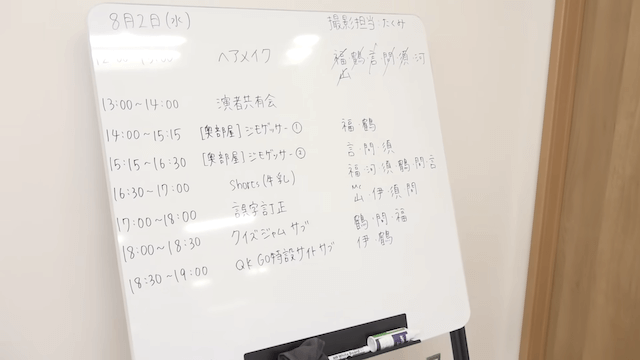 8月2日(水) 撮影担当:たくみ
ヘアメイク 福 鶴 言 問 須 河
山
13:00~14:00 演者共有会
14:00~15:15 [奥部屋]ジモゲッサー① 福 鶴
15:15~16:30 [奥部屋]ジモゲッサー② 言・問・須
16:30~17:00 shorts(牛乳) 福 河 須 鶴 問 言
17:00~18:00 誤字訂正 MC山 伊 須 問
18:00~18:30 クイズジャム サブ 鶴・問・福
18:30~19:00 QK GO特設サイトサブ 伊 鶴